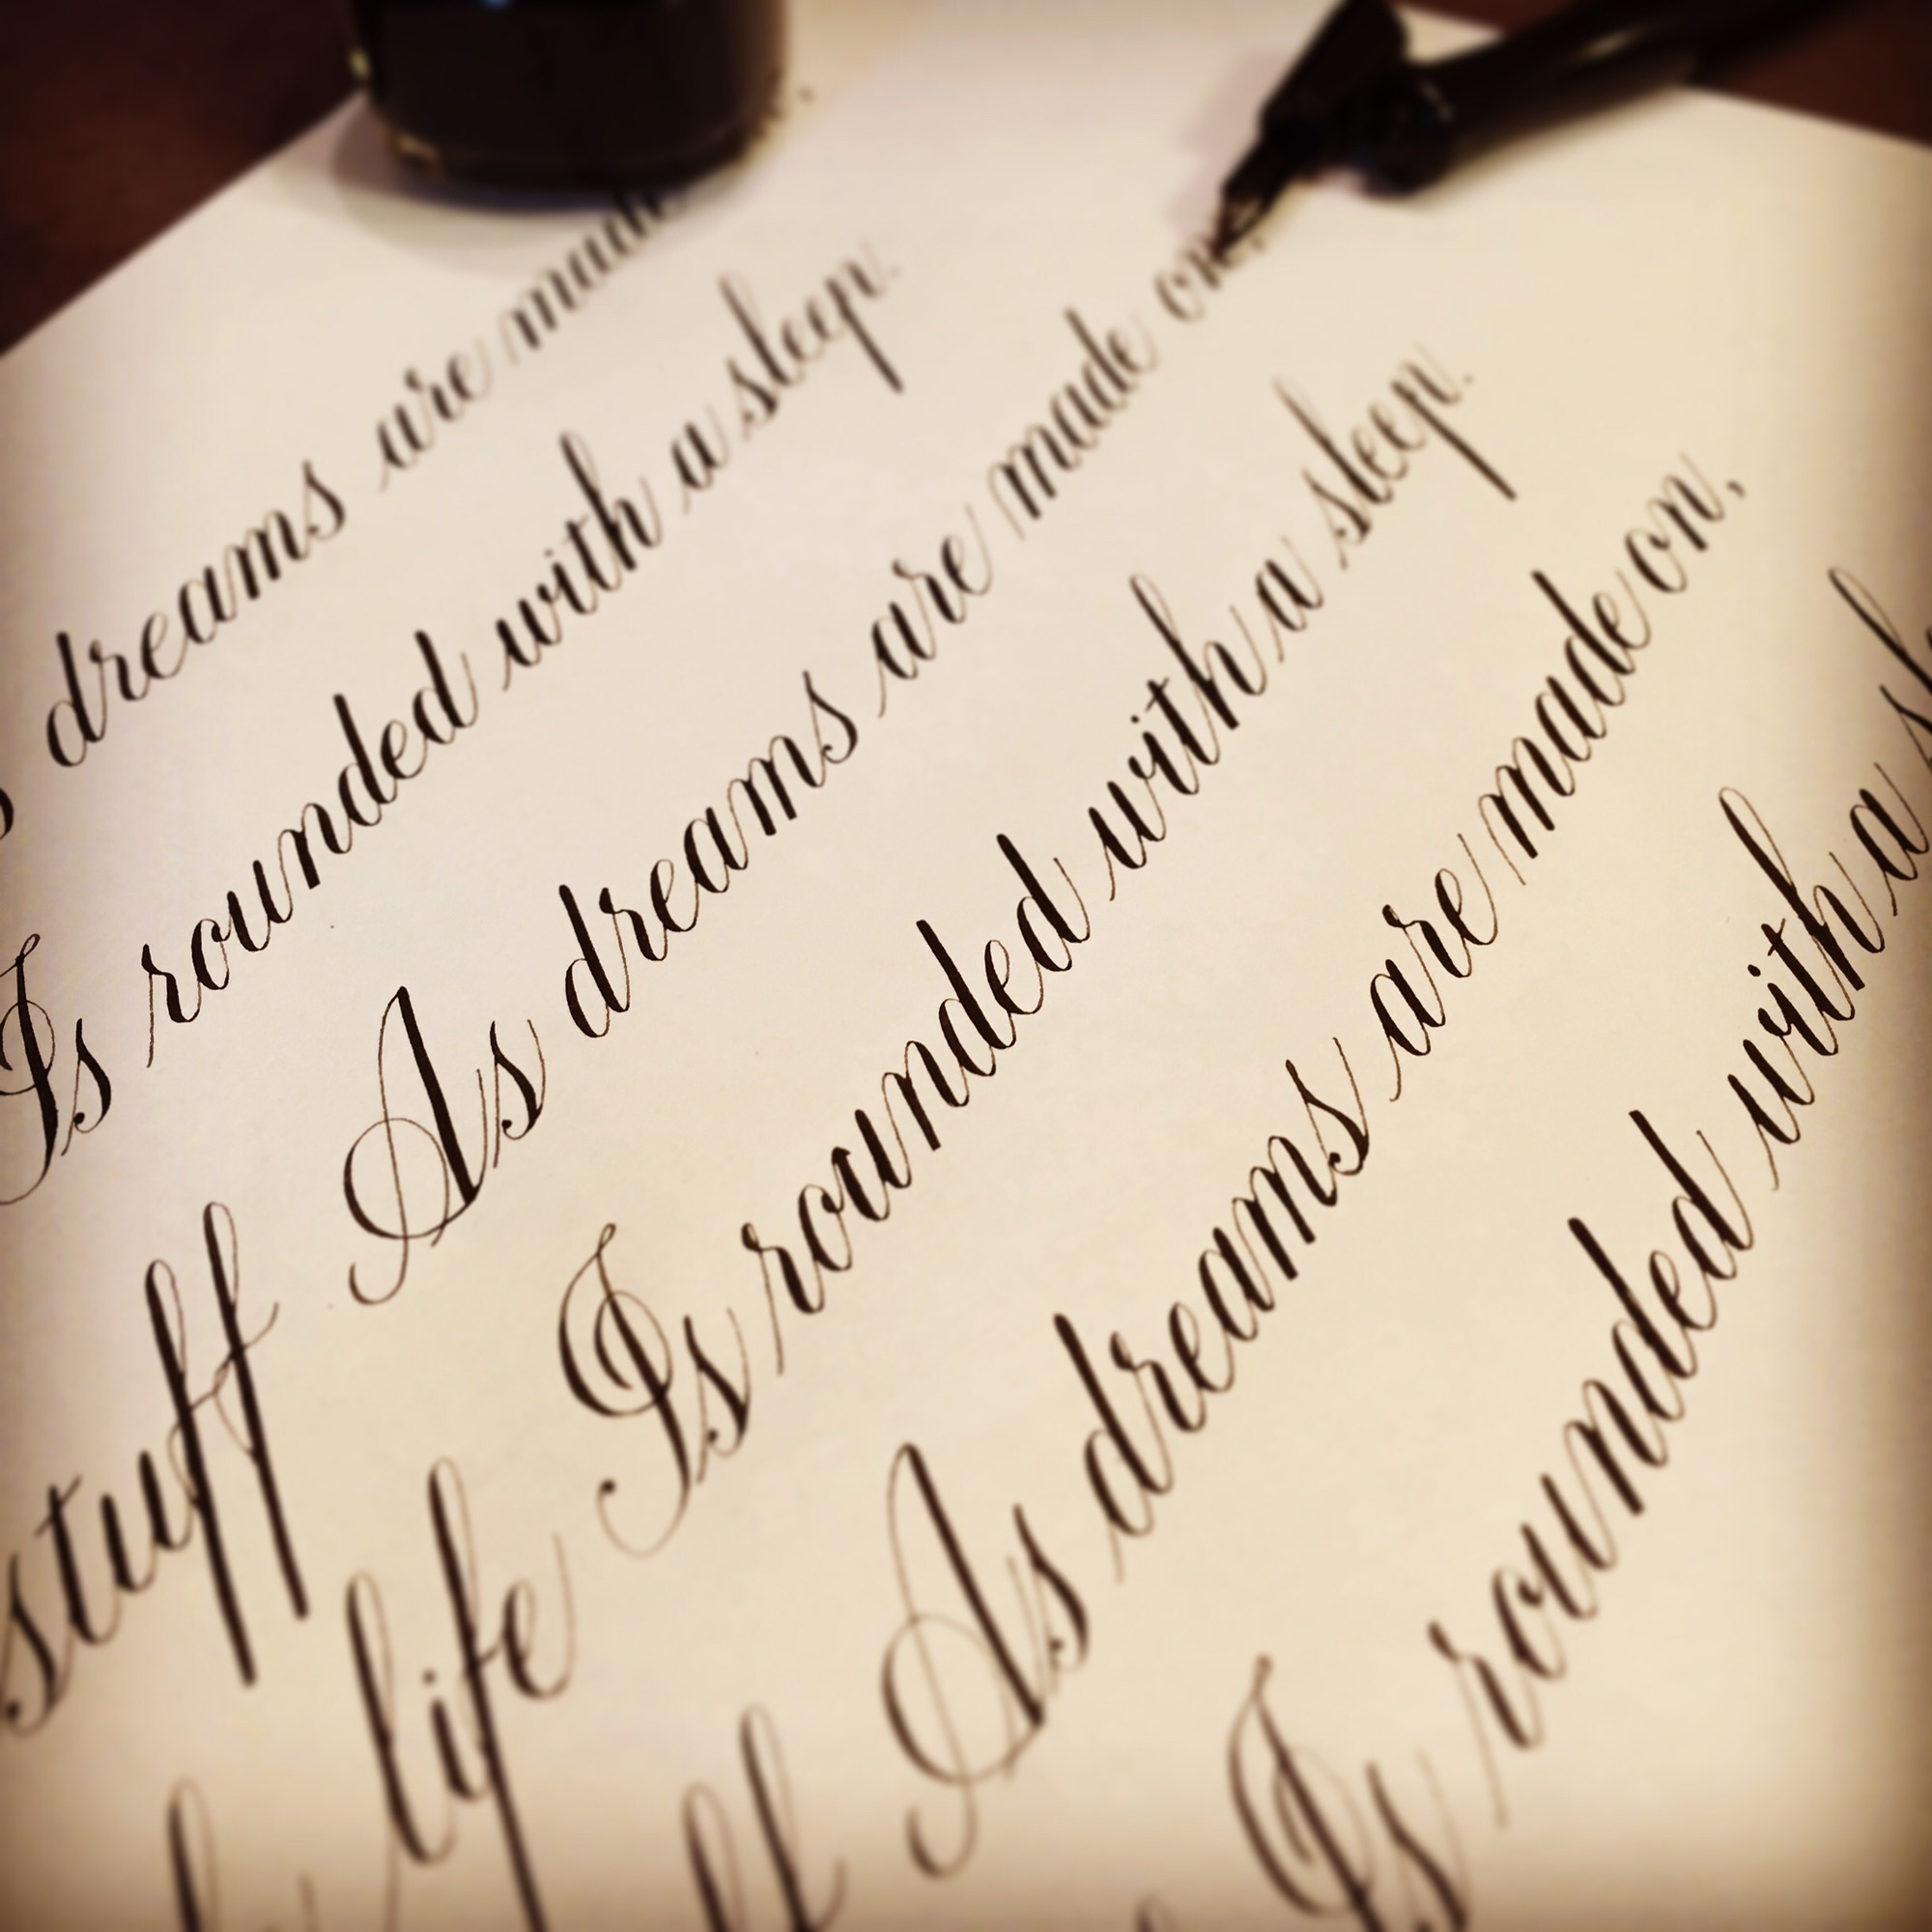 dreams are made
Is rounded with a sleep.
stuff As dreams are made on,
life Is rounded with a sleep.
As dreams are made on,
Is rounded with a